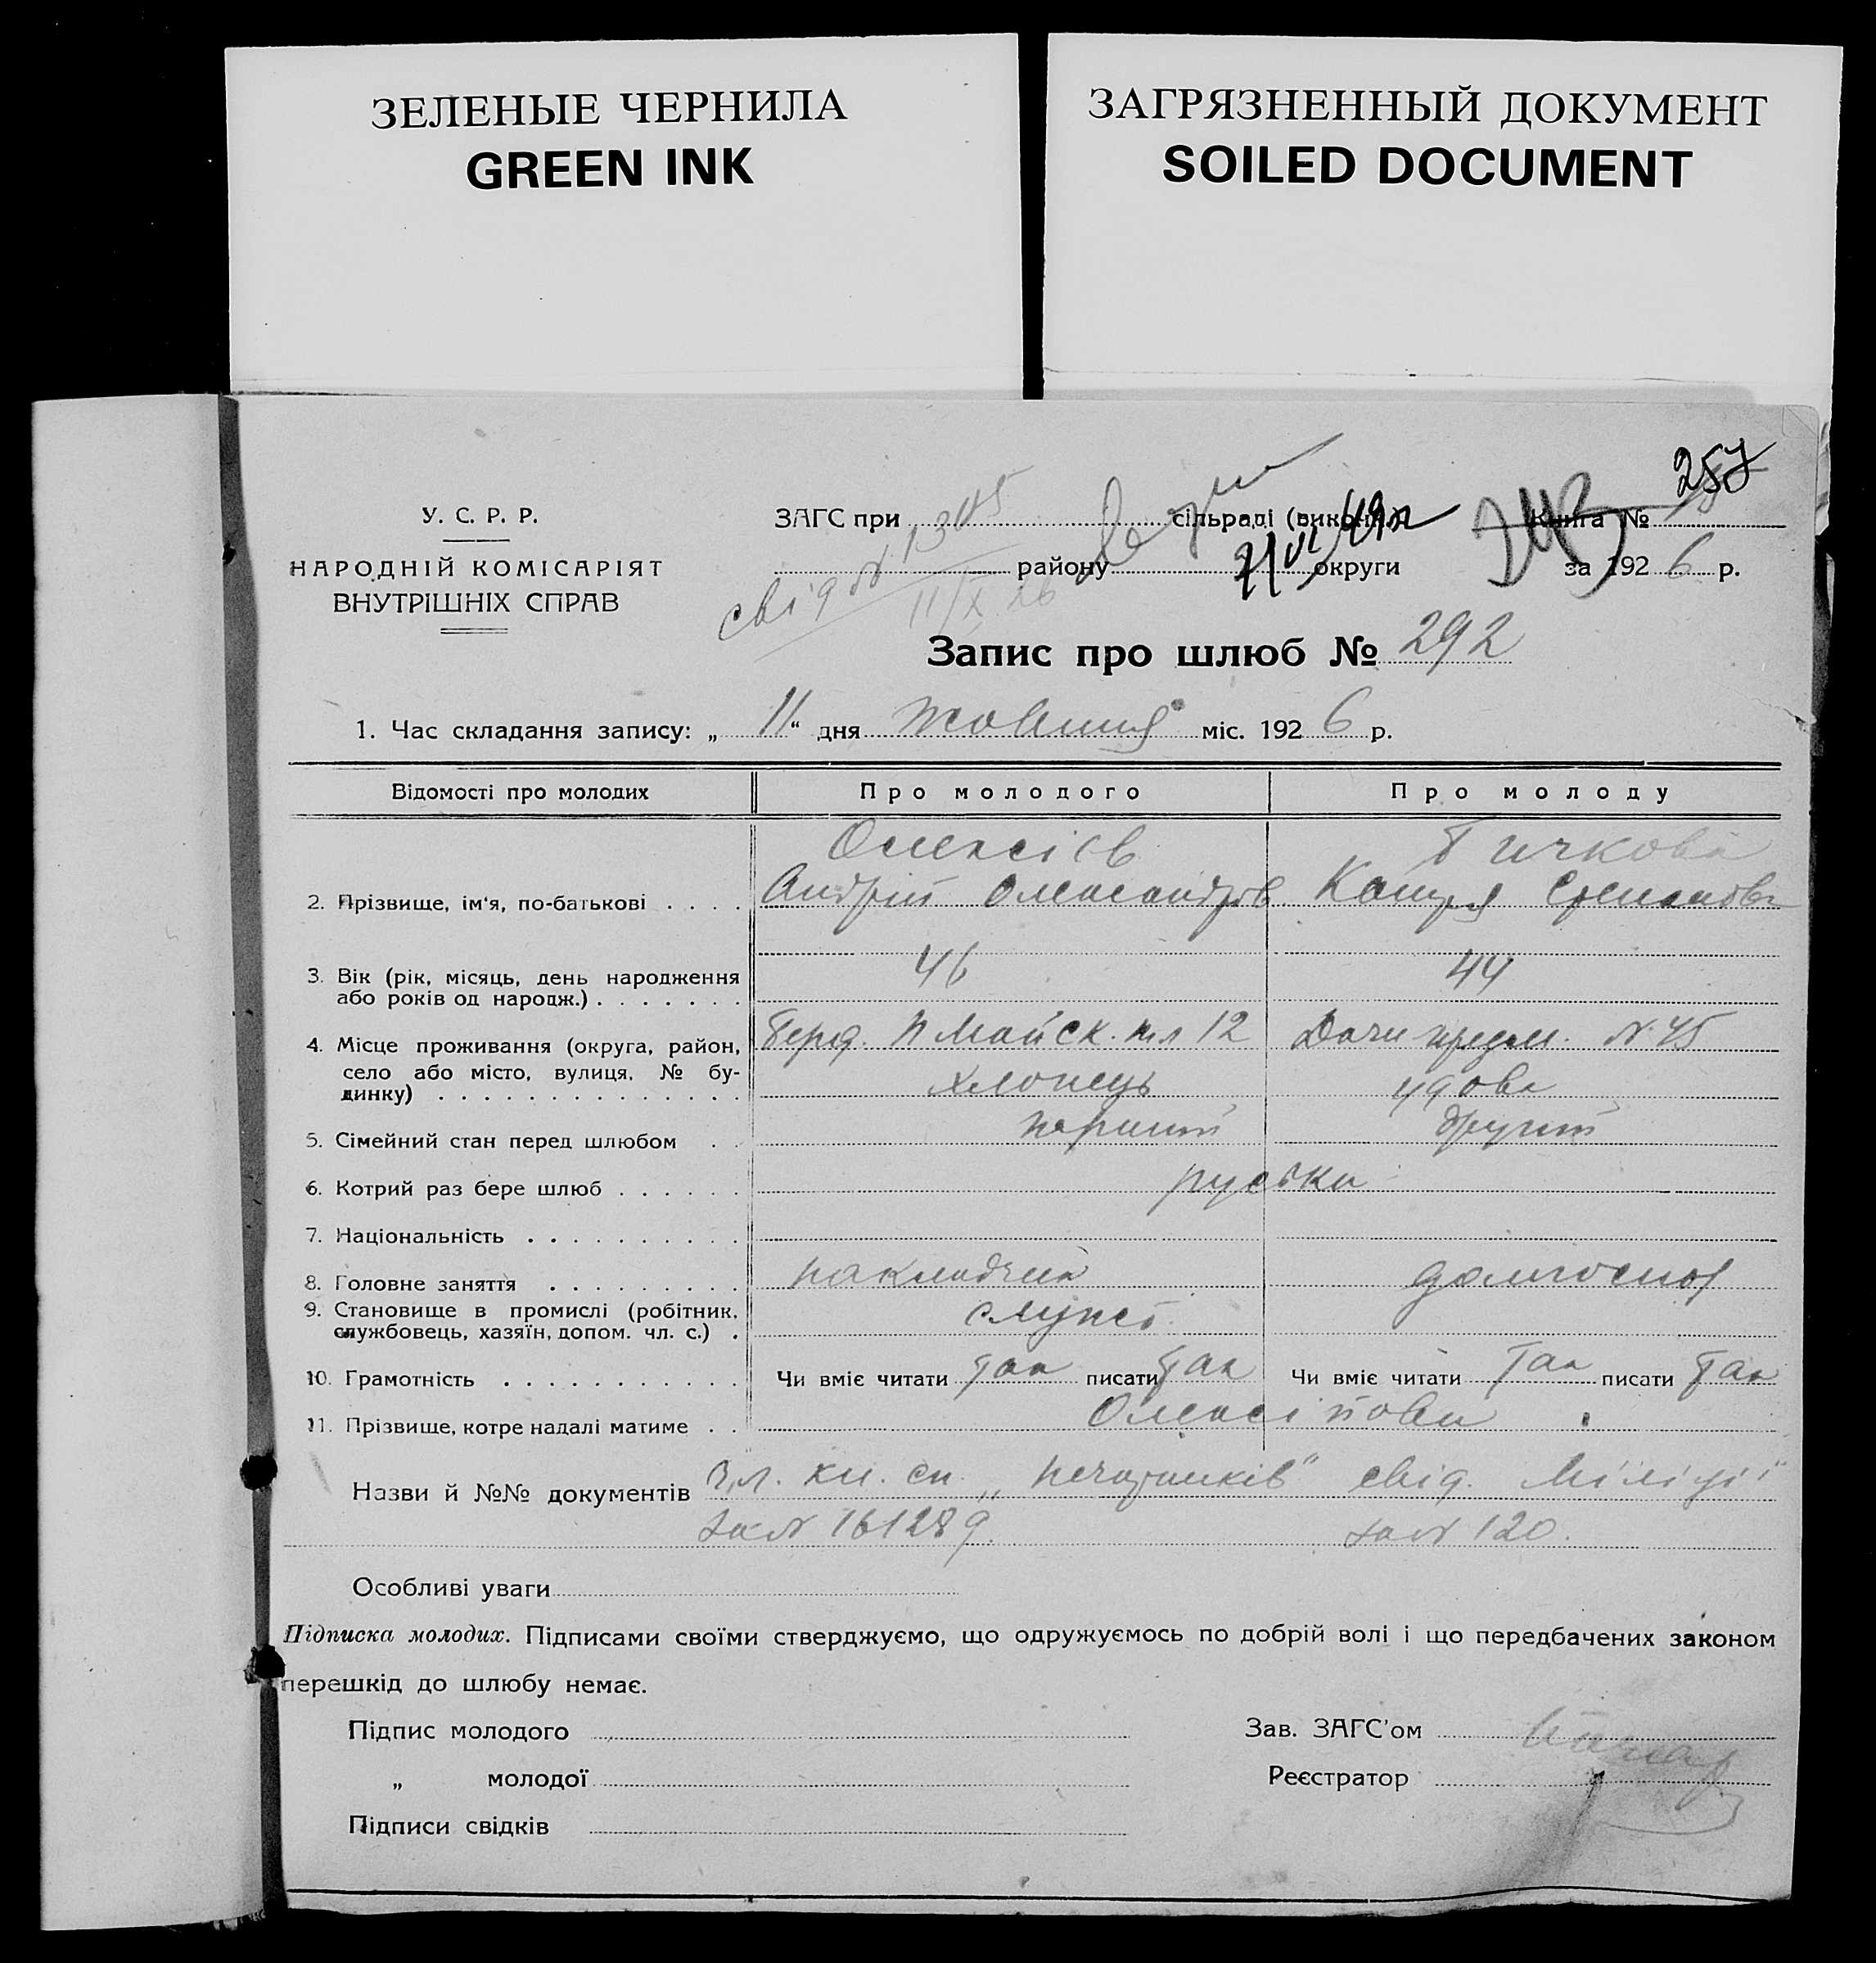 ЗЕЛЕНЫЕ ЧЕРНИЛА
GREEN INK
ЗАГРЯЗНЕННЫЙ ДОКУМЕНТ
SOILED DOCUMENT
257
У. С. Р. Р.
НАРОДНІЙ КОМІСАРІЯТ
ВНУТРІШНІХ СПРАВ
ЗАГС при сільраді (виконк.) Книга №
району округи за 1926 р.
свід № 1305
11/X 26
Запис про шлюб № 292
1. Час складання запису: „ 11 “ дня Жовтня міс. 1926 р.
Відомості про молодих Про молодого Про молоду
Олексієв
2. Прізвище, ім'я, по-батькові . . . . Андрій Олександров. Катря Степанова
3. Вік (рік, місяць, день народження 46 44
або років од народж.) . . . . . . .
4. Місце проживання (округа, район, Берд. П Майск. пл 12 Дачи предм. № 45
село або місто, вулиця, № бу-
динку) . . . . . . . . . . . . . . хлопець удова
5. Сімейний стан перед шлюбом . . перший другий
6. Котрий раз бере шлюб . . . . . . руськи
7. Національність . . . . . . . . . .
8. Головне заняття . . . . . . . . . накладчик домгоспод
9. Становище в промислі (робітник, службовець, хазяїн, допом. чл. с.) . служб.
10. Грамотність . . . . . . . . . . . Чи вміє читати так писати так Чи вміє читати так писати так
11. Прізвище, котре надалі матиме . . Олексійови
Назви й №№ документів Чл. кн. сп. „Печатників“ свід. Міліції
за № 161289. за № 120.
Особливі уваги
Підписка молодих. Підписами своїми стверджуємо, що одружуємось по добрій волі і що передбачених законом
перешкід до шлюбу немає.
Підпис молодого Зав. ЗАГС'ом
„ молодої Реєстратор
Підписи свідків